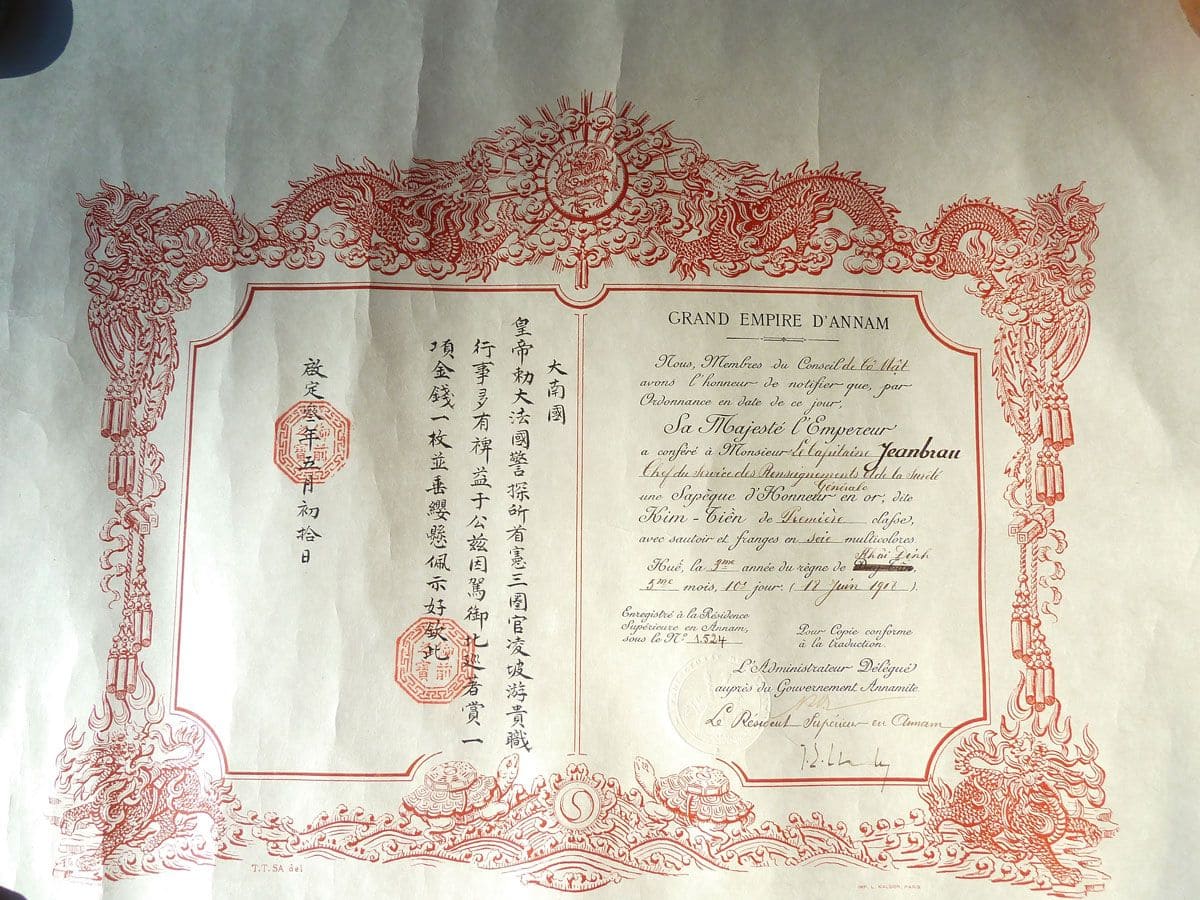 大南國
皇帝勅大法國警探所首憲三圈官凌坡游貴職
行事多有裨益于公兹因駕御北巡者賞一
項金錢一枚並垂纓懸佩示好欽此
啟定叄年五月初拾日
御前之寶
御前之寶
GRAND EMPIRE D'ANNAM
Nous, Membres du Conseil de Cô Mật
avons l'honneur de notifier que, par
Ordonnance en date de ce jour,
Sa Majesté l'Empereur
a conféré à Monsieur le Capitaine Jeanbrau
Chef du service des Renseignements et de la Sureté
Générale
une Sapèque d'Honneur en or, dite
Kim-Tiền de Première classe,
avec sautoir et franges en soie multicolores.
Khải Định
Huế, la 3me année du règne de Duy-Tân,
5me mois, 10e jour. (18 Juin 1918).
Enregistré à la Résidence
Supérieure en Annam,
sous le No 1.524
Pour Copie conforme
à la traduction.
L'Administrateur Délégué
auprès du Gouvernement Annamite.
Le Résident Supérieur en Annam
T.T. SA del
IMP. L. KALDOR, PARIS